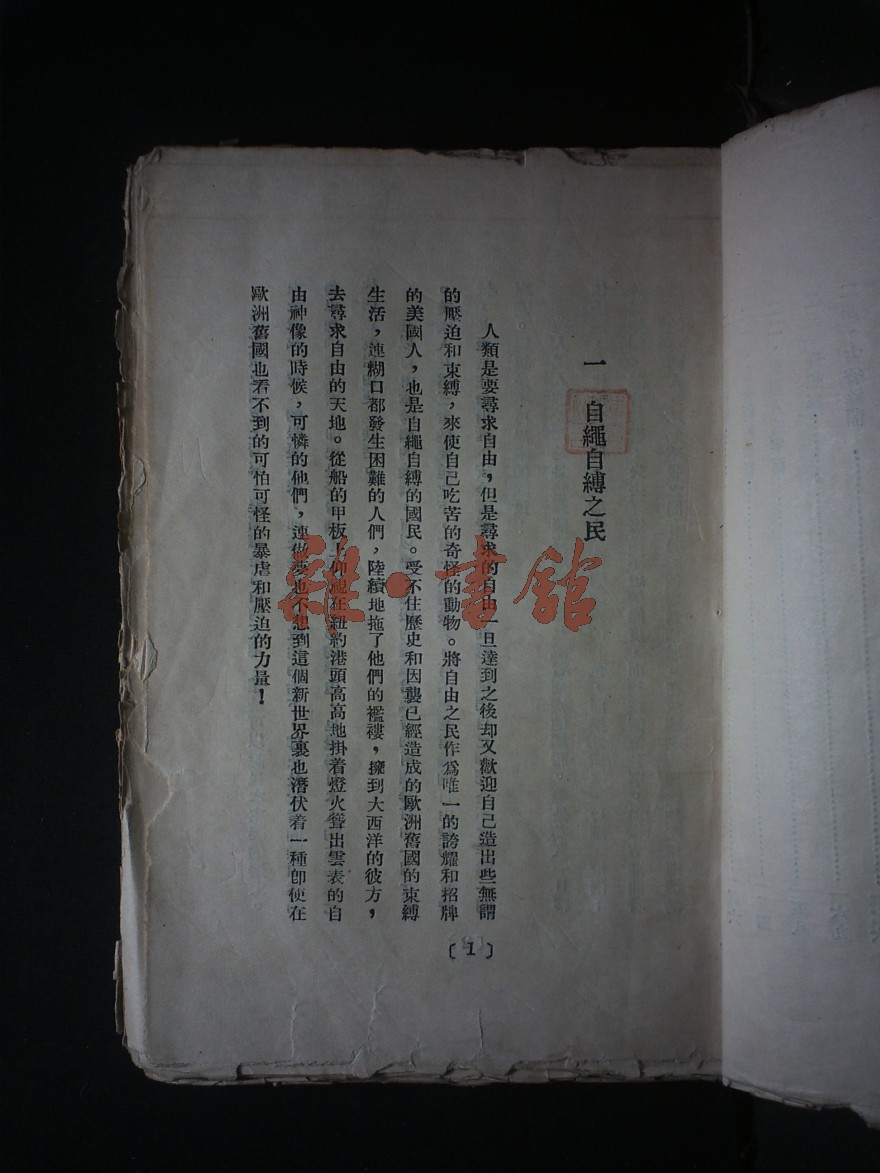 一　自繩自縛之民
人類是要尋求自由，但是尋求的自由一旦達到之後却又歡迎自己造出些無謂
的壓迫和束縛，來使自己吃苦的奇怪的動物。將自由之民作爲唯一的誇耀和招牌
的美國人，也是自繩自縛的國民。受不住歷史和因襲已經造成的歐洲舊國的束縛
生活，連糊口都發生困難的人們，陸續地拖了他們的襤褸，擁到大西洋的彼方，
去尋求自由的天地。從船的甲板上仰視在紐約港頭高高地掛着燈火聳出雲表的自
由神像的時候，可憐的他們，連做夢也不想到這個新世界裏也潛伏着一種卽使在
歐洲舊國也看不到的可怕可怪的暴虐和壓迫的力量！
(1)
雜·書館